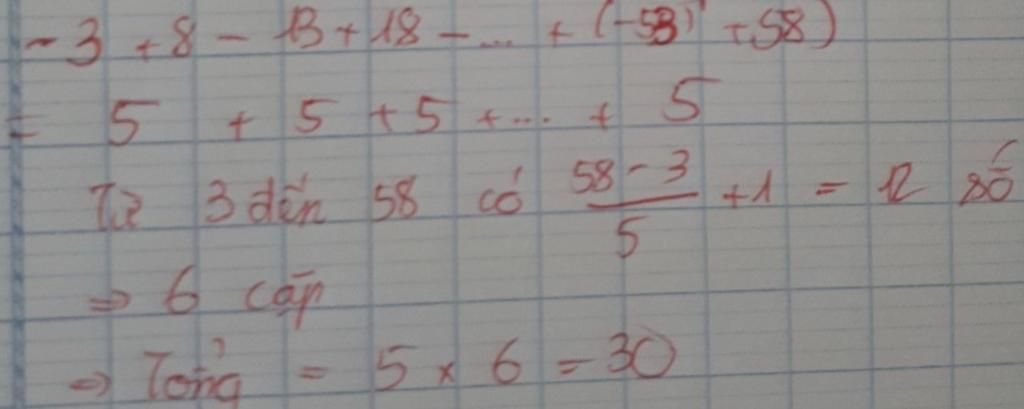 -3 + 8 - 13 + 18 - ... + (-53) + 58)
= 5 + 5 + 5 + ... + 5
Từ 3 đến 58 có \frac{58 - 3}{5} + 1 = 12 số
⇒ 6 cặp
⇒ Tổng = 5 × 6 = 30